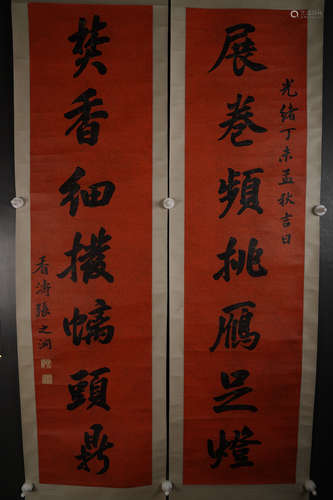 展卷頻挑鴈足燈
光緒丁未孟秋吉日
焚香細撥螭頭鼎
香濤張之洞